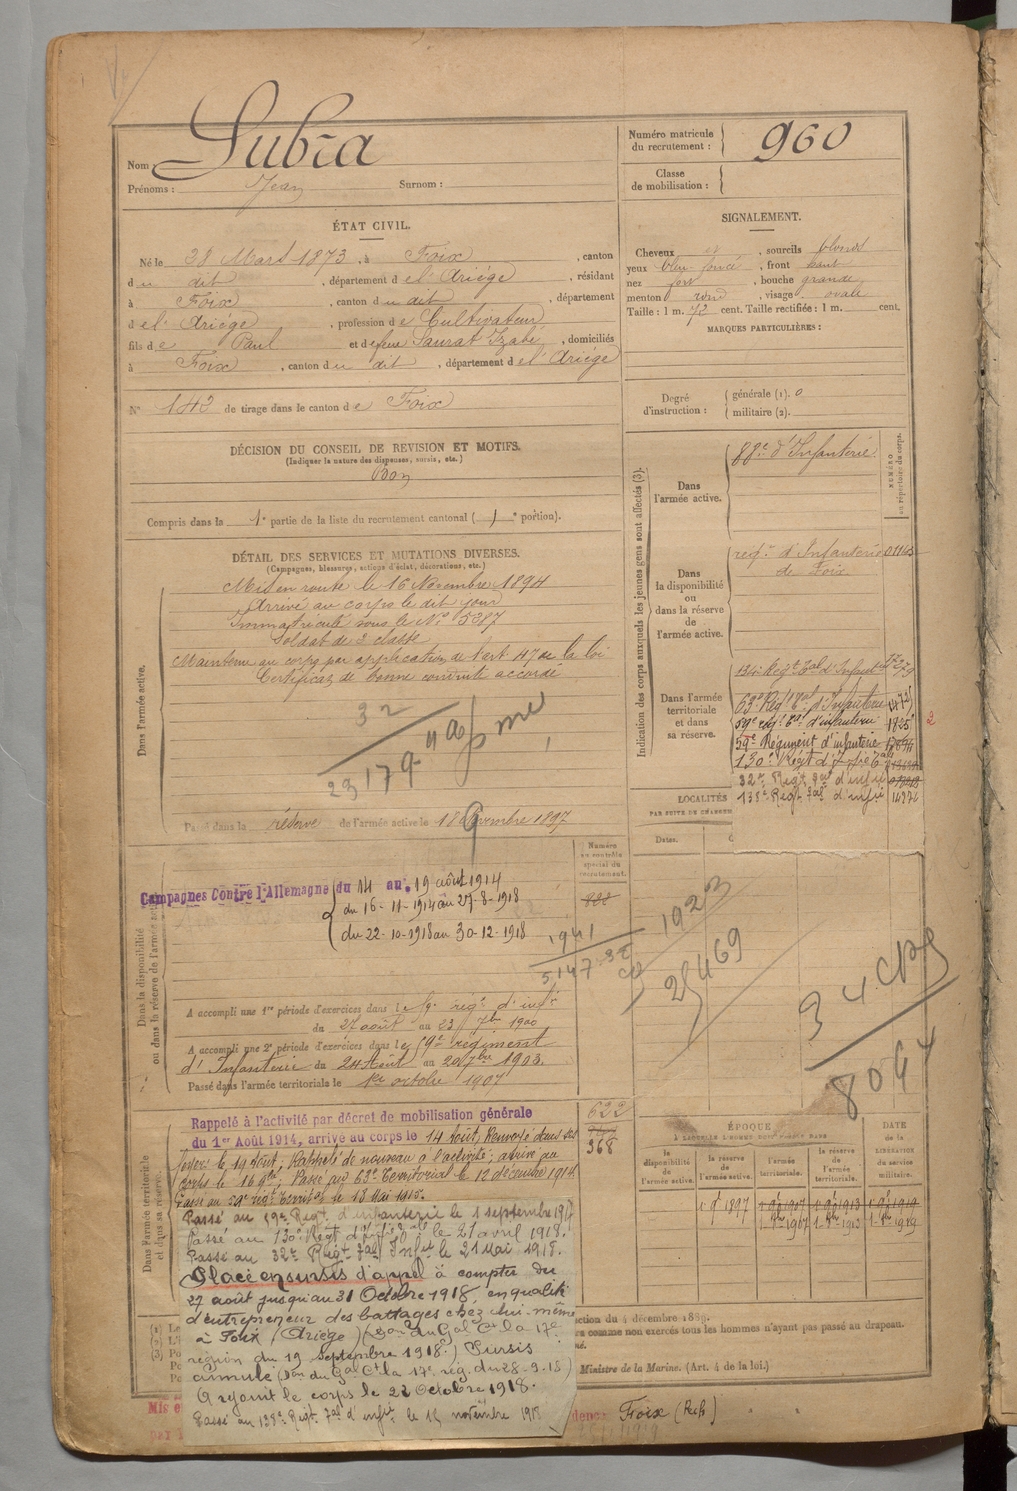 Nom : Subra
Prénoms : Jean Surnom :
Numéro matricule du recrutement : 960
Classe de mobilisation :
ÉTAT CIVIL.
Né le 28 Mars 1873, à Foix, canton
du dit, département de l'Ariège, résidant
à Foix, canton du dit, département
de l'Ariège, profession de Cultivateur
fils de Paul et de feue Saurat Izabé, domiciliés
à Foix, canton du dit, département de l'Ariège
N° 142 de tirage dans le canton de Foix
SIGNALEMENT.
Cheveux et, sourcils blonds
yeux bleu foncé, front haut
nez fort, bouche grande
menton rond, visage ovale
Taille : 1 m. 72 cent. Taille rectifiée : 1 m. cent.
MARQUES PARTICULIÈRES :
Degré d'instruction : générale (1). 0
militaire (2).
DÉCISION DU CONSEIL DE REVISION ET MOTIFS.
(Indiquer la nature des dispenses, sursis, etc.)
Bon
Compris dans la 1e partie de la liste du recrutement cantonal ( 1 e portion).
DÉTAIL DES SERVICES ET MUTATIONS DIVERSES.
(Campagnes, blessures, actions d'éclat, décorations, etc.)
Dans l'armée active.
Mis en route le 16 Novembre 1894
Arrivé au corps le dit jour
Immatriculé sous le N° 5387
Soldat de 2e classe
Maintenu au corps par application de l'art. 47 de la loi
Certificat de bonne conduite accordé
Passé dans la réserve de l'armée active le 1897
Indication des corps auxquels les jeunes gens sont affectés (3).
NUMÉRO au répertoire du corps.
Dans l'armée active.
88e d'Infanterie
Dans la disponibilité ou dans la réserve de l'armée active.
regt d'Infanterie
de Foix
Dans l'armée territoriale et dans sa réserve.
134e Regt Tal d'Infanterie
63e Regt Tal d'Infanterie
59e regt Tal d'infanterie 1825
59e Régiment d'infanterie
130e Régt d'Infie Tale
32e Regt Tal d'infie
138e Regt Tal d'infie
LOCALITÉS
Dates.
Numéro au contrôle spécial du recrutement.
828
Dans la disponibilité ou dans la réserve de l'armée active.
Campagnes Contre l'Allemagne du 14 au 19 août 1914
du 16-11-1914 au 27-8-1918
du 22-10-1918 au 30-12-1918
A accompli une 1re période d'exercices dans le 59e regt d'infie
du 27 août au 23 7bre 1900
A accompli une 2e période d'exercices dans le 59e régiment
d'Infanterie du 24 Août au 20 7bre 1903.
Passé dans l'armée territoriale le 1er octobre 1907
Dans l'armée territoriale et dans sa réserve.
622
368
Rappelé à l'activité par décret de mobilisation générale
du 1er Août 1914, arrivé au corps le 14 Août, Renvoyé dans ses
foyers le 19 Août; Rappelé de nouveau à l'activité; arrivé au
corps le 16 9bre; Passé au 63e Territorial le 12 décembre 1914
Passé au 59e regt territal le 13 Mai 1915.
Passé au 59e Regt d'infanterie le 1 septembre 1917
Passé au 130e Régt d'Infie Tale le 21 avril 1918.
Passé au 32e Regt Tal Infie le 21 Mai 1918.
Placé en sursis d'appel à compter du
27 août jusqu'au 31 Octobre 1918 en qualité
d'entrepreneur des battages chez lui-même
à Foix (Ariège) (Don du Gal Ct la 17e
région du 19 Septembre 1918) Sursis
annulé (Don du Gal Ct la 17e rég. du 28-9-18)
A rejoint le corps le 22 Octobre 1918.
Passé au 138e Regt Tal d'infie le 15 novembre 1918
ÉPOQUE
À LAQUELLE L'HOMME DOIT PASSER DANS
DATE de la LIBÉRATION du service militaire.
la disponibilité de l'armée active.
la réserve de l'armée active.
l'armée territoriale.
la réserve de l'armée territoriale.
1897
ction du 4 décembre 1889.
ra comme non exercés tous les hommes n'ayant pas passé au drapeau.
Ministre de la Marine. (Art. 4 de la loi.)
Foix